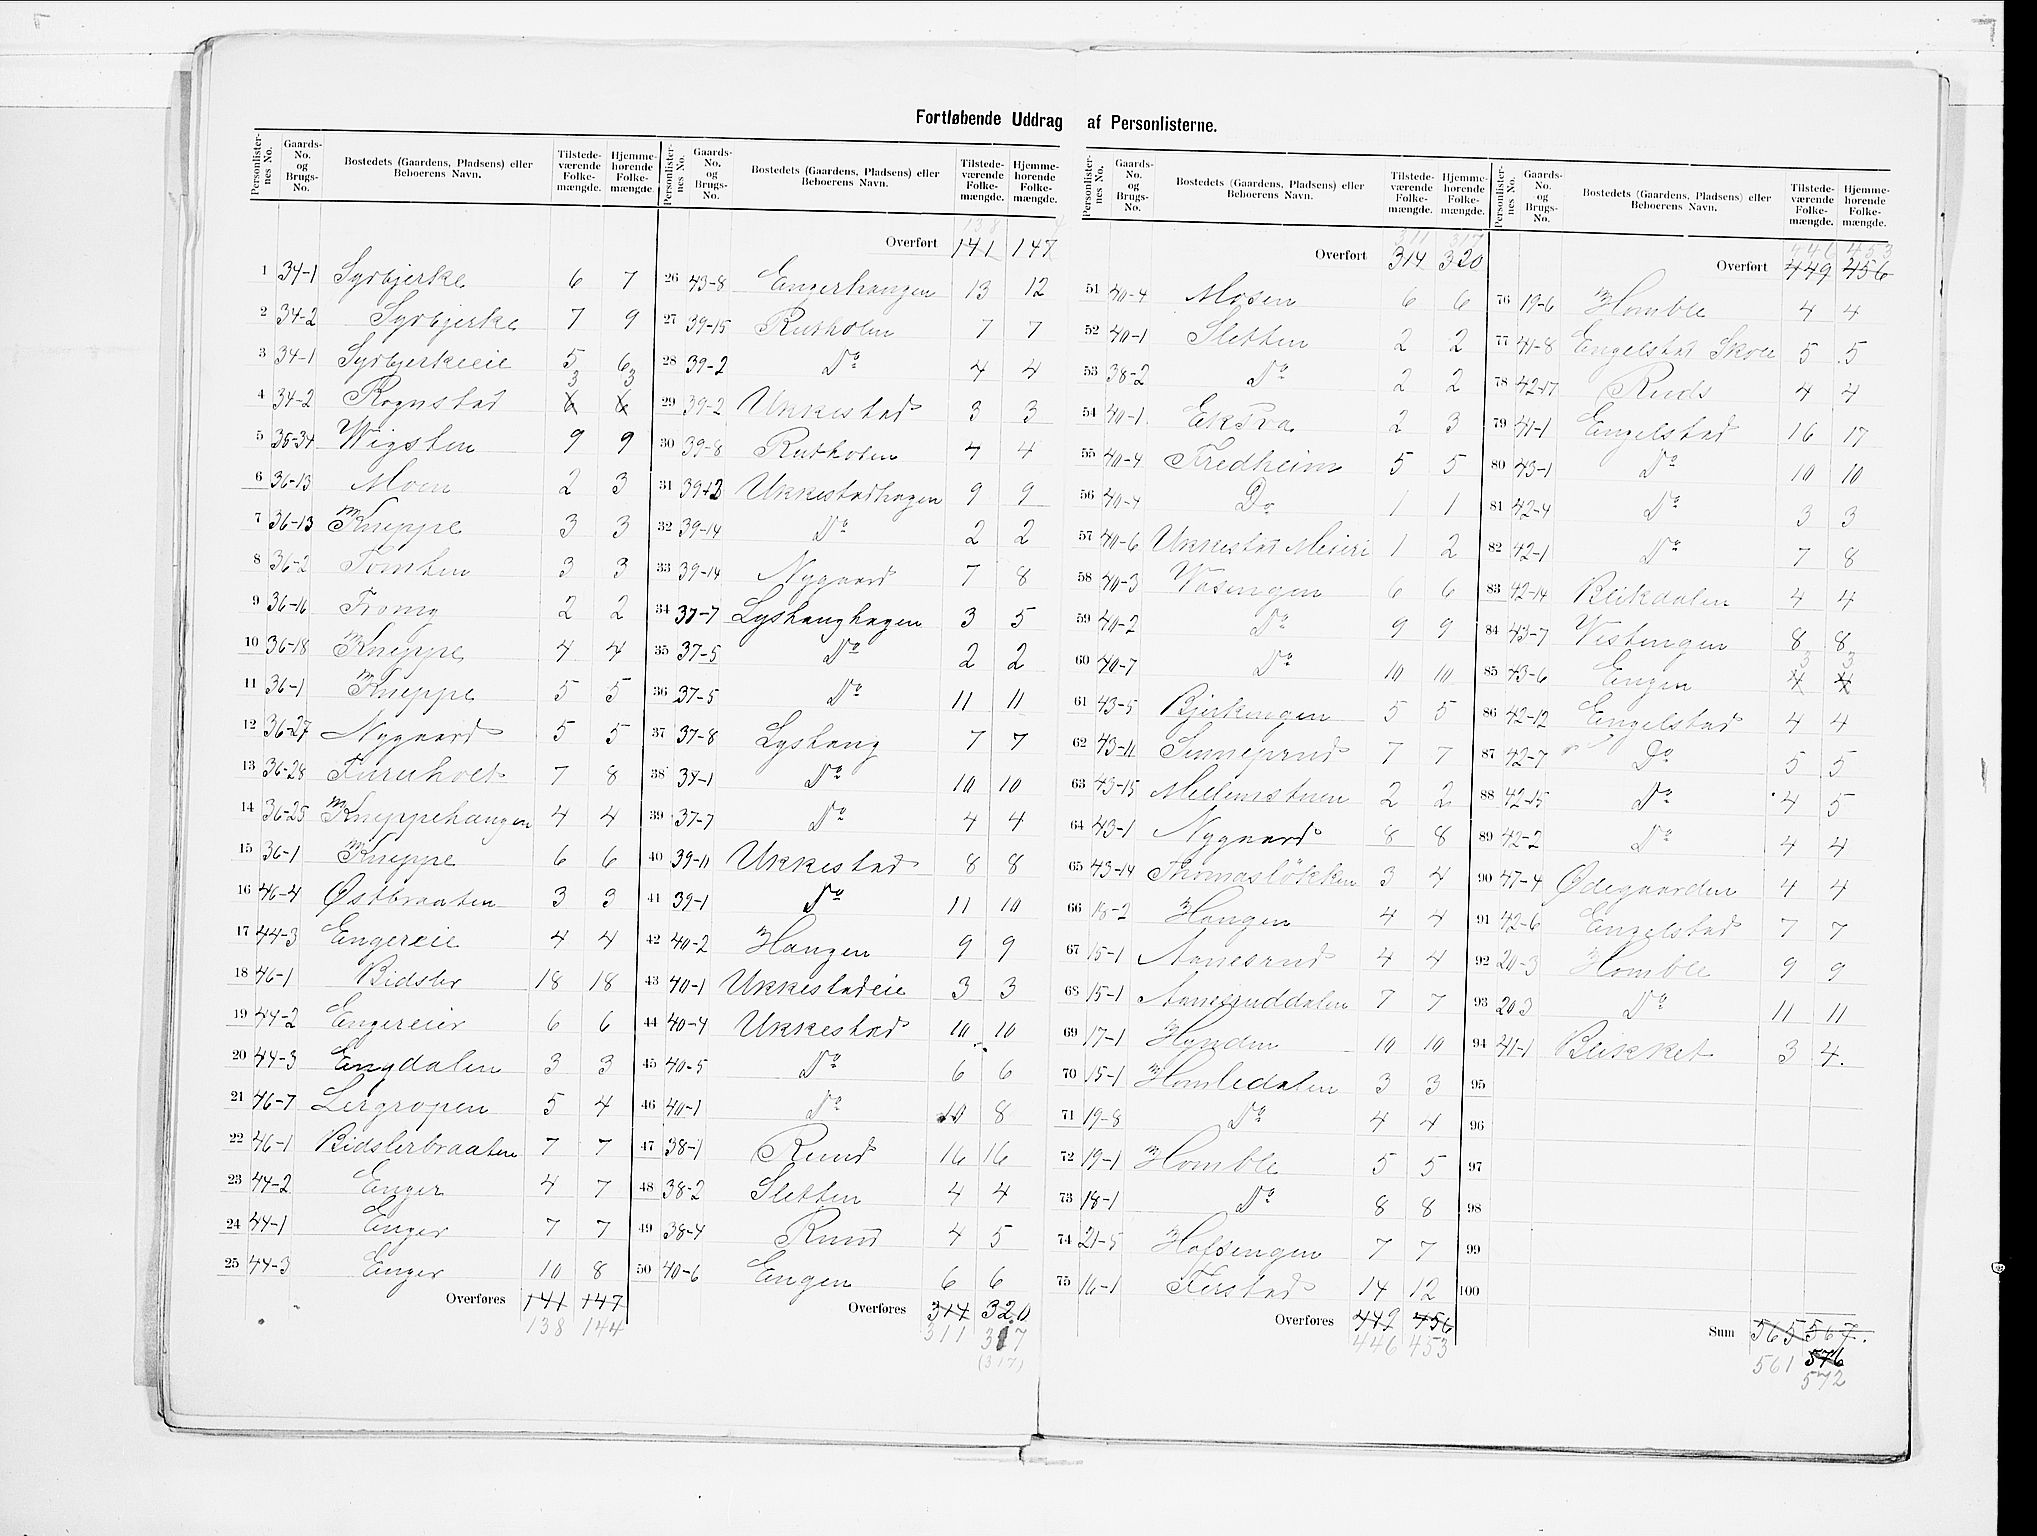 Fortløbende Uddrag af Personlisterne.
Personlister-nes No. Gaards-No. og Brugs-No. Bostedets (Gaardens, Pladsens) eller Beboerens Navn. Tilstede-værende Folke-mængde. Hjemme-hørende Folke-mængde.
1 34-1 Syrbjerke 6 7
2 34-2 Syrbjerke 7 9
3 34-1 Syrbjerkeeie 5 6
3 3
4 34-2 Rognstad 6 6
5 35-34 Wigsten 9 9
6 36-13 Moen 2 3
7 36-13 Kneppe 3 3
8 36-2 Tomten 3 3
9 36-16 Tromg 2 2
10 36-18 Kneppe 4 4
11 36-1 Kneppe 5 5
12 36-27 Nygaard 5 5
13 36-28 Furuholt 7 8
14 36-25 Kneppehaugen 4 4
15 36-1 Kneppe 6 6
16 46-4 Østbraaten 3 3
17 44-3 Engereie 4 4
18 46-1 Bidsler 18 18
19 44-2 Engereier 6 6
20 44-3 Engdalen 3 3
21 46-7 Lergropen 5 4
22 46-1 Bidslerbraaten 7 7
23 44-2 Enger 4 7
24 44-1 Enger 7 7
25 44-3 Enger 10 8
Overføres 141 147
138 144
Personlister-nes No. Gaards-No. og Brugs-No. Bostedets (Gaardens, Pladsens) eller Beboerens Navn. Tilstede-værende Folke-mængde. Hjemme-hørende Folke-mængde.
138 4
Overført 141 147
26 43-8 Engerhaugen 13 12
27 39-15 Rutholen 7 7
28 39-2 Do 4 4
29 39-2 Ukkestad 3 3
30 39-8 Rutholen 4 4
31 39-2 Ukkestadhagen 9 9
32 39-14 Do 2 2
33 39-14 Nygaard 7 8
34 37-7 Lyshaughagen 3 5
35 37-5 Do 2 2
36 37-5 Do 11 11
37 37-8 Lyshaug 7 7
38 37-1 Do 10 10
39 37-7 Do 4 4
40 39-11 Ukkestad 8 8
41 39-1 Do 11 10
42 40-2 Haugen 9 9
43 40-1 Ukkestadeie 3 3
44 40-4 Ukkestad 10 10
45 40-5 Do 6 6
46 40-1 Do 10 8
47 38-1 Ruud 16 16
48 38-2 Sletten 4 4
49 38-4 Ruud 4 5
50 40-6 Engen 6 6
Overføres 314 320
311 317
(317)
Personlister-nes No. Gaards-No. og Brugs-No. Bostedets (Gaardens, Pladsens) eller Beboerens Navn. Tilstede-værende Folke-mængde. Hjemme-hørende Folke-mængde.
311 317
Overført 314 320
51 40-4 Mosen 6 6
52 40-1 Sletten 2 2
53 38-2 Do 2 2
54 40-1 Ekstra 2 3
55 40-4 Fredheim 5 5
56 40-4 Do 1 1
57 40-6 Ukkestad Meieri 1 2
58 40-3 Vasengen 6 6
59 40-2 Do 9 9
60 40-7 Do 10 10
61 43-5 Bjerkengen 5 5
62 43-11 Sinnerud 7 7
63 43-15 Mellemstuen 2 2
64 43-1 Nygaard 8 8
65 43-14 Thomasløkken 3 4
66 18-2 Haugen 4 4
67 15-1 Aanesrud 4 4
68 15-1 Aanesruddalen 7 7
69 17-1 Hynden 10 10
70 15-1 Homledalen 3 3
71 19-8 Do 4 4
72 19-1 Homble 5 5
73 18-1 Do 8 8
74 21-5 Hofsengen 7 7
75 16-1 Ferstad 14 12
Overføres 449 456
446 453
Personlister-nes No. Gaards-No. og Brugs-No. Bostedets (Gaardens, Pladsens) eller Beboerens Navn. Tilstede-værende Folke-mængde. Hjemme-hørende Folke-mængde.
446 453
Overført 449 456
76 19-6 Homble 4 4
77 41-8 Engelstad Skole 5 5
78 42-17 Ruds 4 4
79 41-1 Engelstad 16 17
80 43-1 Do 10 10
81 42-4 Do 3 3
82 42-1 Do 7 8
83 42-14 Blikdalen 4 4
84 43-7 Vestengen 8 8
3 3
85 43-6 Engen 4 4
86 42-12 Engelstad 4 4
87 42-7 Do 5 5
88 42-15 Do 4 5
89 42-2 Do 4 4
90 47-4 Ødegaarden 4 4
91 42-6 Engelstad 7 7
92 20-3 Homble 9 9
93 20 3 Do 11 11
94 41-1 Blikket 3 4.
95
96
97
98
99
100
Sum 565 567.
561 576
572